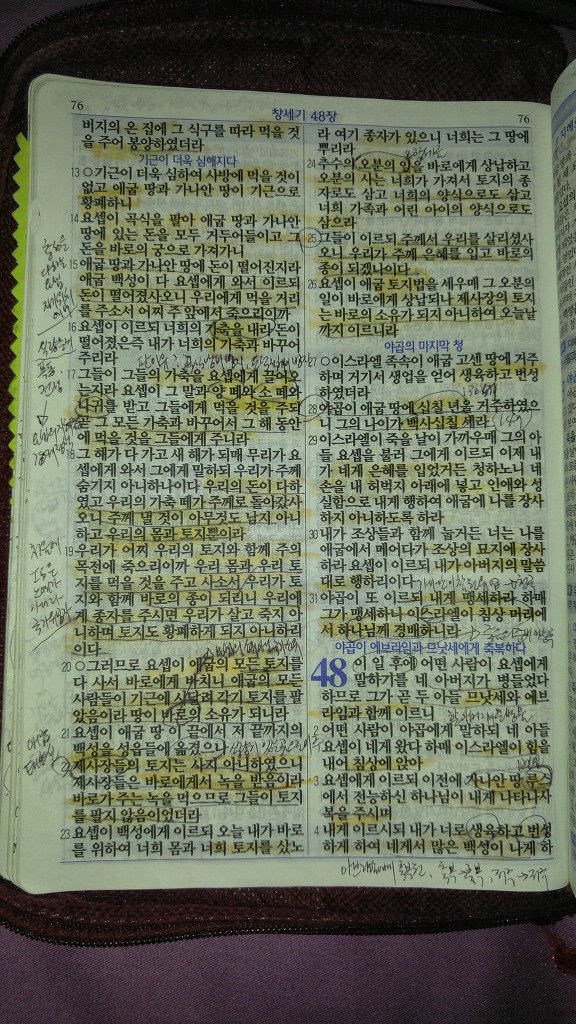 76
창세기 48장
76
버지의 온 집에 그 식구를 따라 먹을 것
을 주어 봉양하였더라
기근이 더욱 심해지다
13 ○기근이 더욱 심하여 사방에 먹을 것이
없고 애굽 땅과 가나안 땅이 기근으로
황폐하니
14 요셉이 곡식을 팔아 애굽 땅과 가나안
땅에 있는 돈을 모두 거두어들이고 그
돈을 바로의 궁으로 가져가니
15 애굽 땅과 가나안 땅에 돈이 떨어진지라
애굽 백성이 다 요셉에게 와서 이르되
돈이 떨어졌사오니 우리에게 먹을 거리
를 주소서 어찌 주 앞에서 죽으리이까
16 요셉이 이르되 너희의 가축을 내라 돈이
떨어졌은즉 내가 너희의 가축과 바꾸어
주리라
17 그들이 그들의 가축을 요셉에게 끌어오
는지라 요셉이 그 말과 양 떼와 소 떼와
나귀를 받고 그들에게 먹을 것을 주되
곧 그 모든 가축과 바꾸어서 그 해 동안
에 먹을 것을 그들에게 주니라
18 그 해가 다 가고 새 해가 되매 무리가 요
셉에게 와서 그에게 말하되 우리가 주께
숨기지 아니하나이다 우리의 돈이 다하
였고 우리의 가축 떼가 주께로 돌아갔사
오니 주께 낼 것이 아무것도 남지 아니
하고 우리의 몸과 토지뿐이라
19 우리가 어찌 우리의 토지와 함께 주의
목전에 죽으리이까 우리 몸과 우리 토
지를 먹을 것을 주고 사소서 우리가 토
지와 함께 바로의 종이 되리니 우리에
게 종자를 주시면 우리가 살고 죽지 아
니하며 토지도 황폐하게 되지 아니하리
이다
20 ○그러므로 요셉이 애굽의 모든 토지를
다 사서 바로에게 바치니 애굽의 모든
사람들이 기근에 시달려 각기 토지를 팔
았음이라 땅이 바로의 소유가 되니라
21 요셉이 애굽 땅 이 끝에서 저 끝까지의
백성을 성읍들에 옮겼으나
22 제사장들의 토지는 사지 아니하였으니
제사장들은 바로에게서 녹을 받음이라
바로가 주는 녹을 먹으므로 그들이 토지
를 팔지 않음이었더라
23 요셉이 백성에게 이르되 오늘 내가 바로
를 위하여 너희 몸과 너희 토지를 샀노
라 여기 종자가 있으니 너희는 그 땅에
뿌리라
24 추수의 오분의 일을 바로에게 상납하고
오분의 사는 너희가 가져서 토지의 종
자로도 삼고 너희의 양식으로도 삼고
너희 가족과 어린 아이의 양식으로도
삼으라
25 그들이 이르되 주께서 우리를 살리셨사
오니 우리가 주께 은혜를 입고 바로의
종이 되겠나이다
26 요셉이 애굽 토지법을 세우매 그 오분의
일이 바로에게 상납되나 제사장의 토지
는 바로의 소유가 되지 아니하여 오늘날
까지 이르니라
야곱의 마지막 청
27 ○이스라엘 족속이 애굽 고센 땅에 거주
하며 거기서 생업을 얻어 생육하고 번성
하였더라
28 야곱이 애굽 땅에 십칠 년을 거주하였으
니 그의 나이가 백사십칠 세라
29 이스라엘이 죽을 날이 가까우매 그의 아
들 요셉을 불러 그에게 이르되 이제 내
가 네게 은혜를 입었거든 청하노니 네
손을 내 허벅지 아래에 넣고 인애와 성
실함으로 내게 행하여 애굽에 나를 장사
하지 아니하도록 하라
30 내가 조상들과 함께 눕거든 너는 나를
애굽에서 메어다가 조상의 묘지에 장사
하라 요셉이 이르되 내가 아버지의 말씀
대로 행하리이다
31 야곱이 또 이르되 내게 맹세하라 하매
그가 맹세하니 이스라엘이 침상 머리에
서 하나님께 경배하니라
야곱이 에브라임과 므낫세에게 축복하다
48 이 일 후에 어떤 사람이 요셉에게
말하기를 네 아버지가 병들었다
하므로 그가 곧 두 아들 므낫세와 에브
라임과 함께 이르니
2 어떤 사람이 야곱에게 말하되 네 아들
요셉이 네게 왔다 하매 이스라엘이 힘을
내어 침상에 앉아
3 요셉에게 이르되 이전에 가나안 땅 루스
에서 전능하신 하나님이 내게 나타나사
복을 주시며
4 내게 이르시되 내가 너로 생육하고 번성
하게 하여 네게서 많은 백성이 나게 하